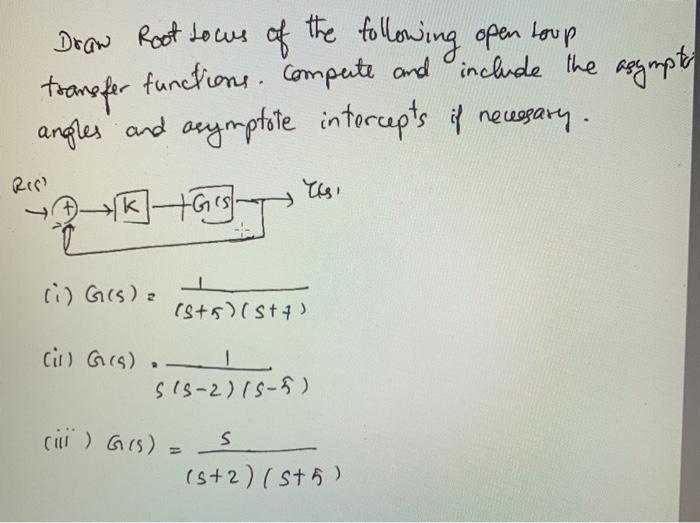 Draw Root Locus of the following open loop
transfer functions. Compute and include the asympto
angles and asymptote intercepts if necessary.
R(s) + K G(s) Y(s)
(i) G(s) = 1 / (s+5)(s+7)
(ii) G(s) = 1 / s(s-2)(s-5)
(iii) G(s) = s / (s+2)(s+5)